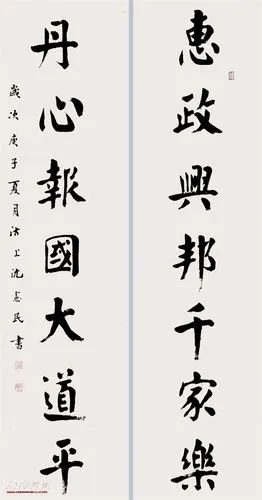 惠政興邦千家樂
丹心報國大道平
歲次庚子夏月沽上沈惠民書